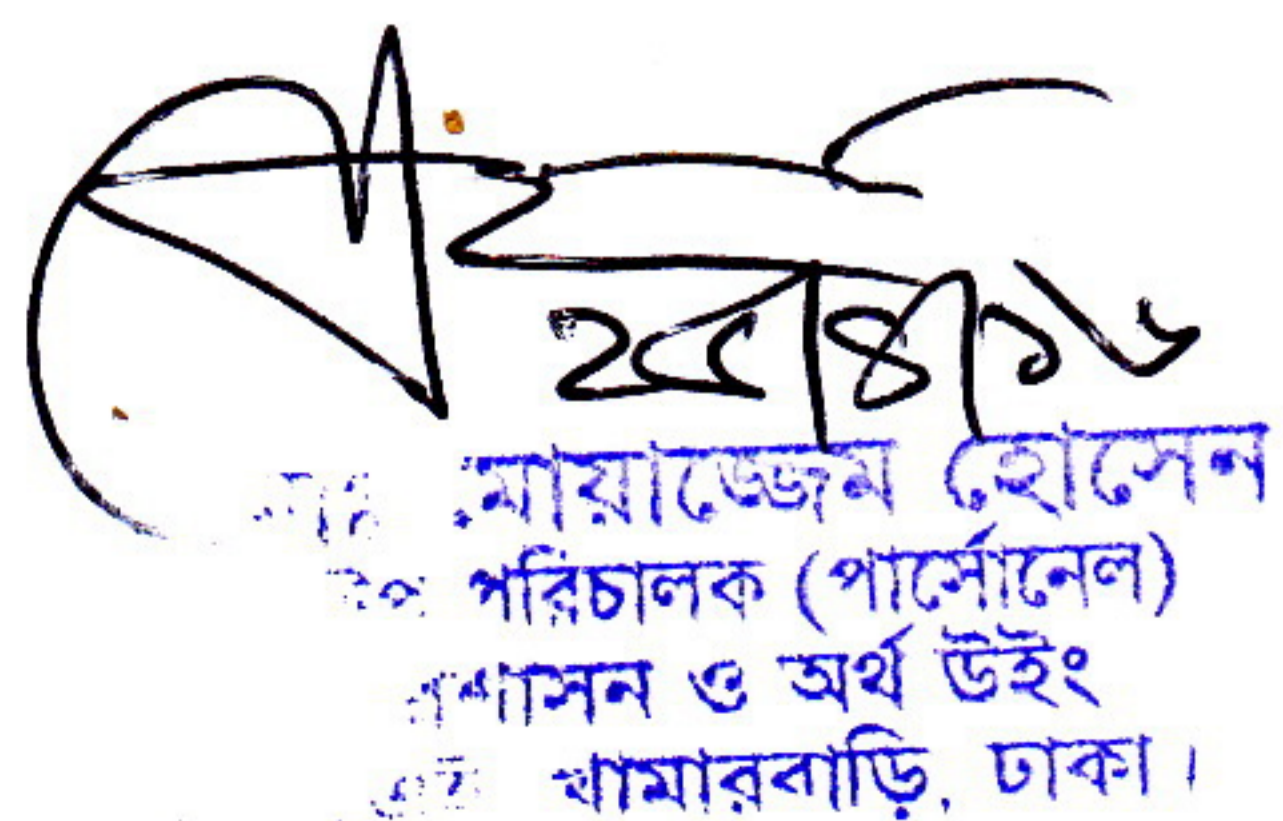 ২৫/৪/১৬
মোয়াজ্জেম হোসেন
উপ পরিচালক (পার্সোনেল)
প্রশাসন ও অর্থ উইং
খামারবাড়ি, ঢাকা।